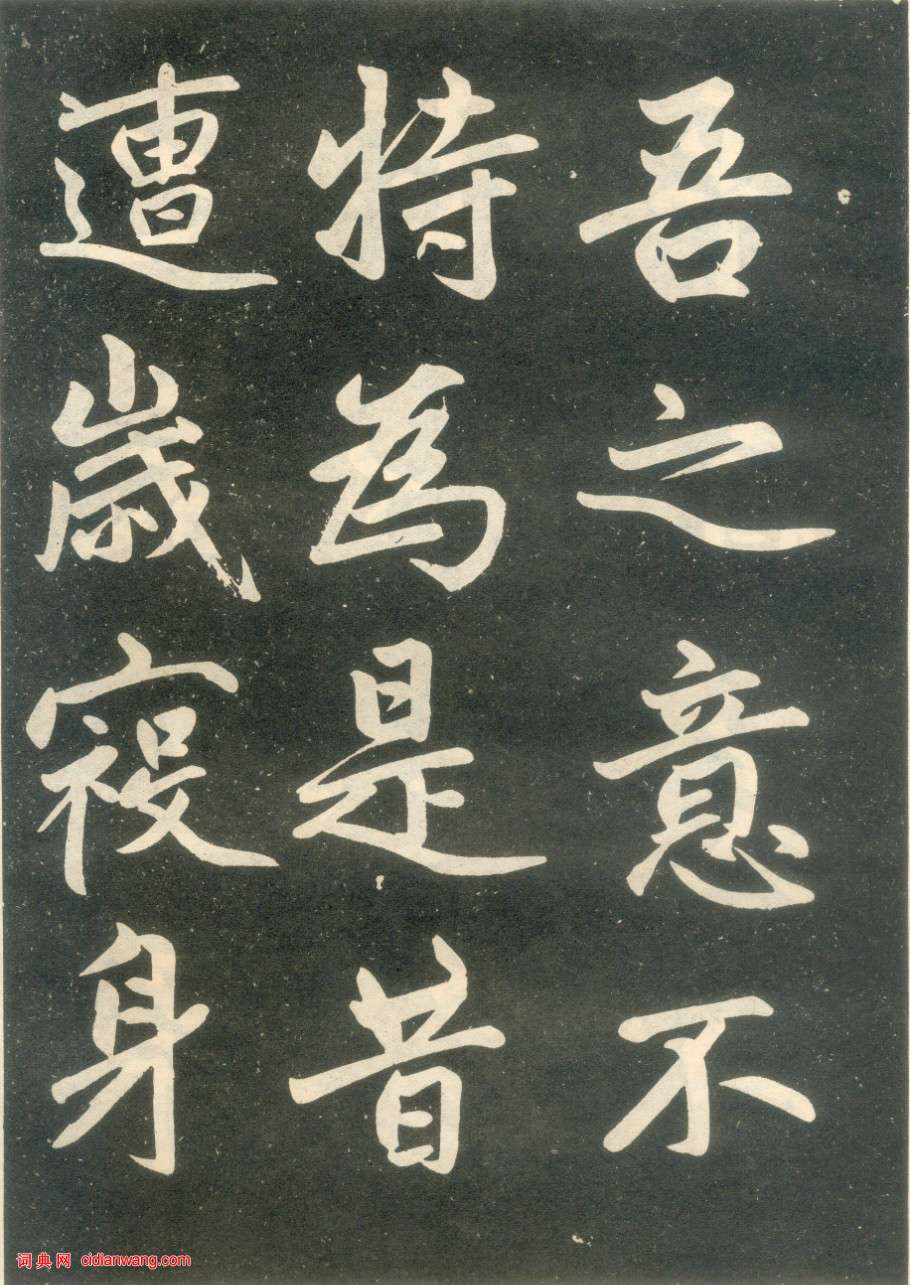 吾之意不
特為是昔
遭歲祲身
词典网 cidianwang.com